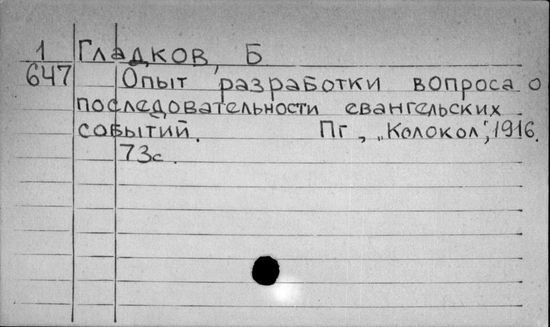 1 Гладков, Б
647 Опыт разработки вопроса о
последовательности евангельских
событий. Пг, „Колокол", 1916.
73с.